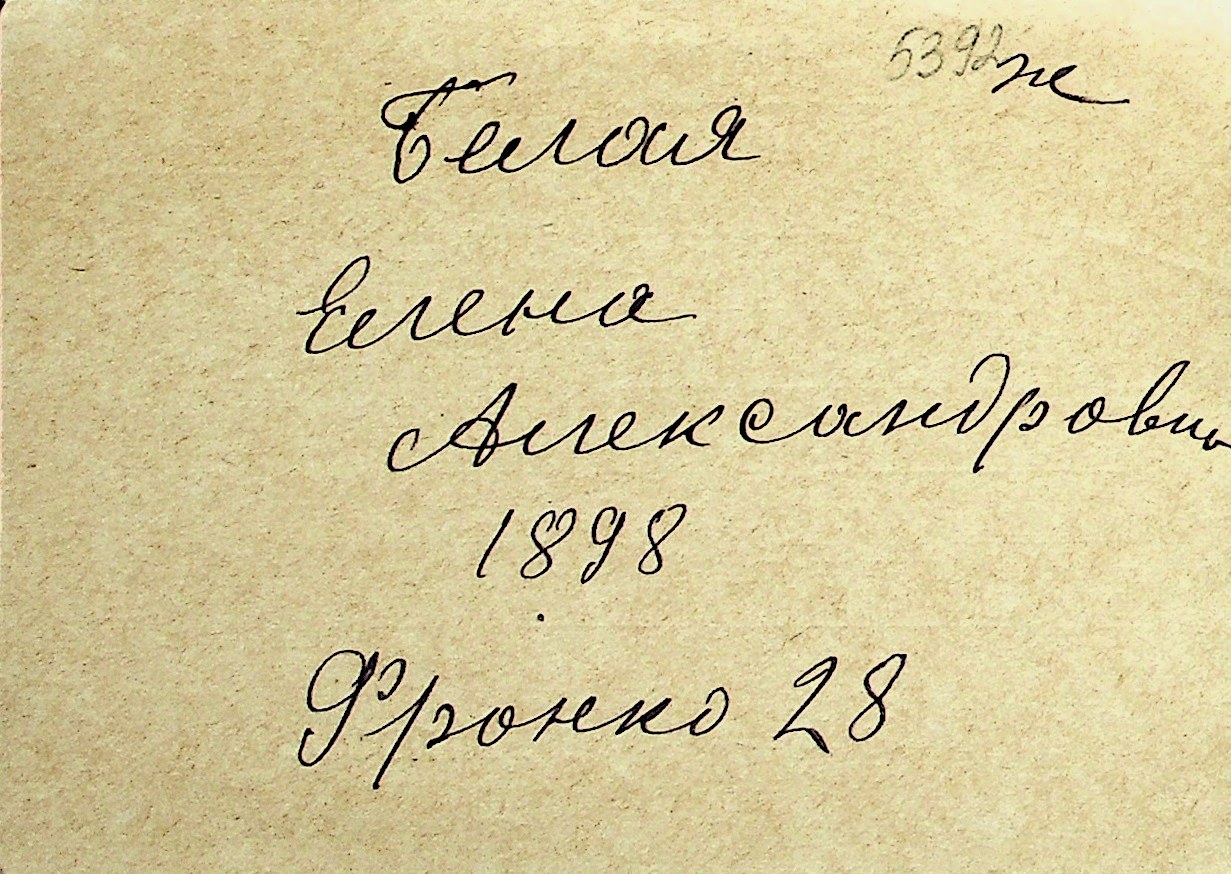 5392 ж
Белая
Елена
Александровна
1898
Франко 28